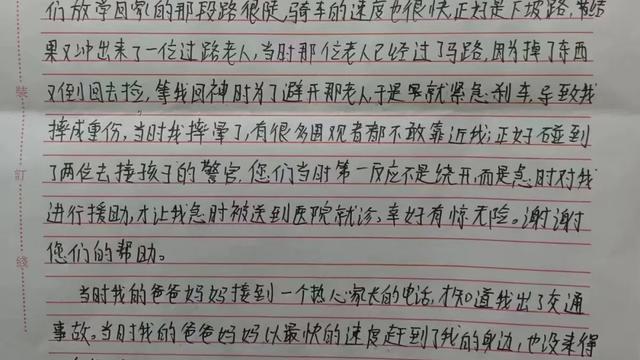 们放学回家的那段路很陡,骑车的速度也很快,正好是下坡路,
果又冲出来了一位过路老人,当时那位老人已经过了马路,因为掉了东西
又倒回去捡,等我回神时为了避开那老人于是早就紧急刹车,导致我
摔成重伤,当时我摔晕了,有很多围观者都不敢靠近我;正好碰到
了两位去接孩子的警官,您们当时第一反应不是绕开,而是急时对我
进行援助,才让我急时被送到医院就诊,幸好有惊无险。谢谢
您们的帮助。
当时我的爸爸妈妈接到一个热心家长的电话,才知道我出了交通
事故。当时我的爸爸妈妈以最快的速度赶到了我的身边,也没来得
裝
訂
綫